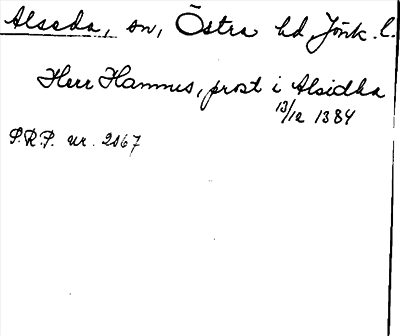 Alseda, sn, Östra hd Jönk. l.
Herr Hannus, prost i Alsidha
13/12 1384
S.R.P. nr. 2167